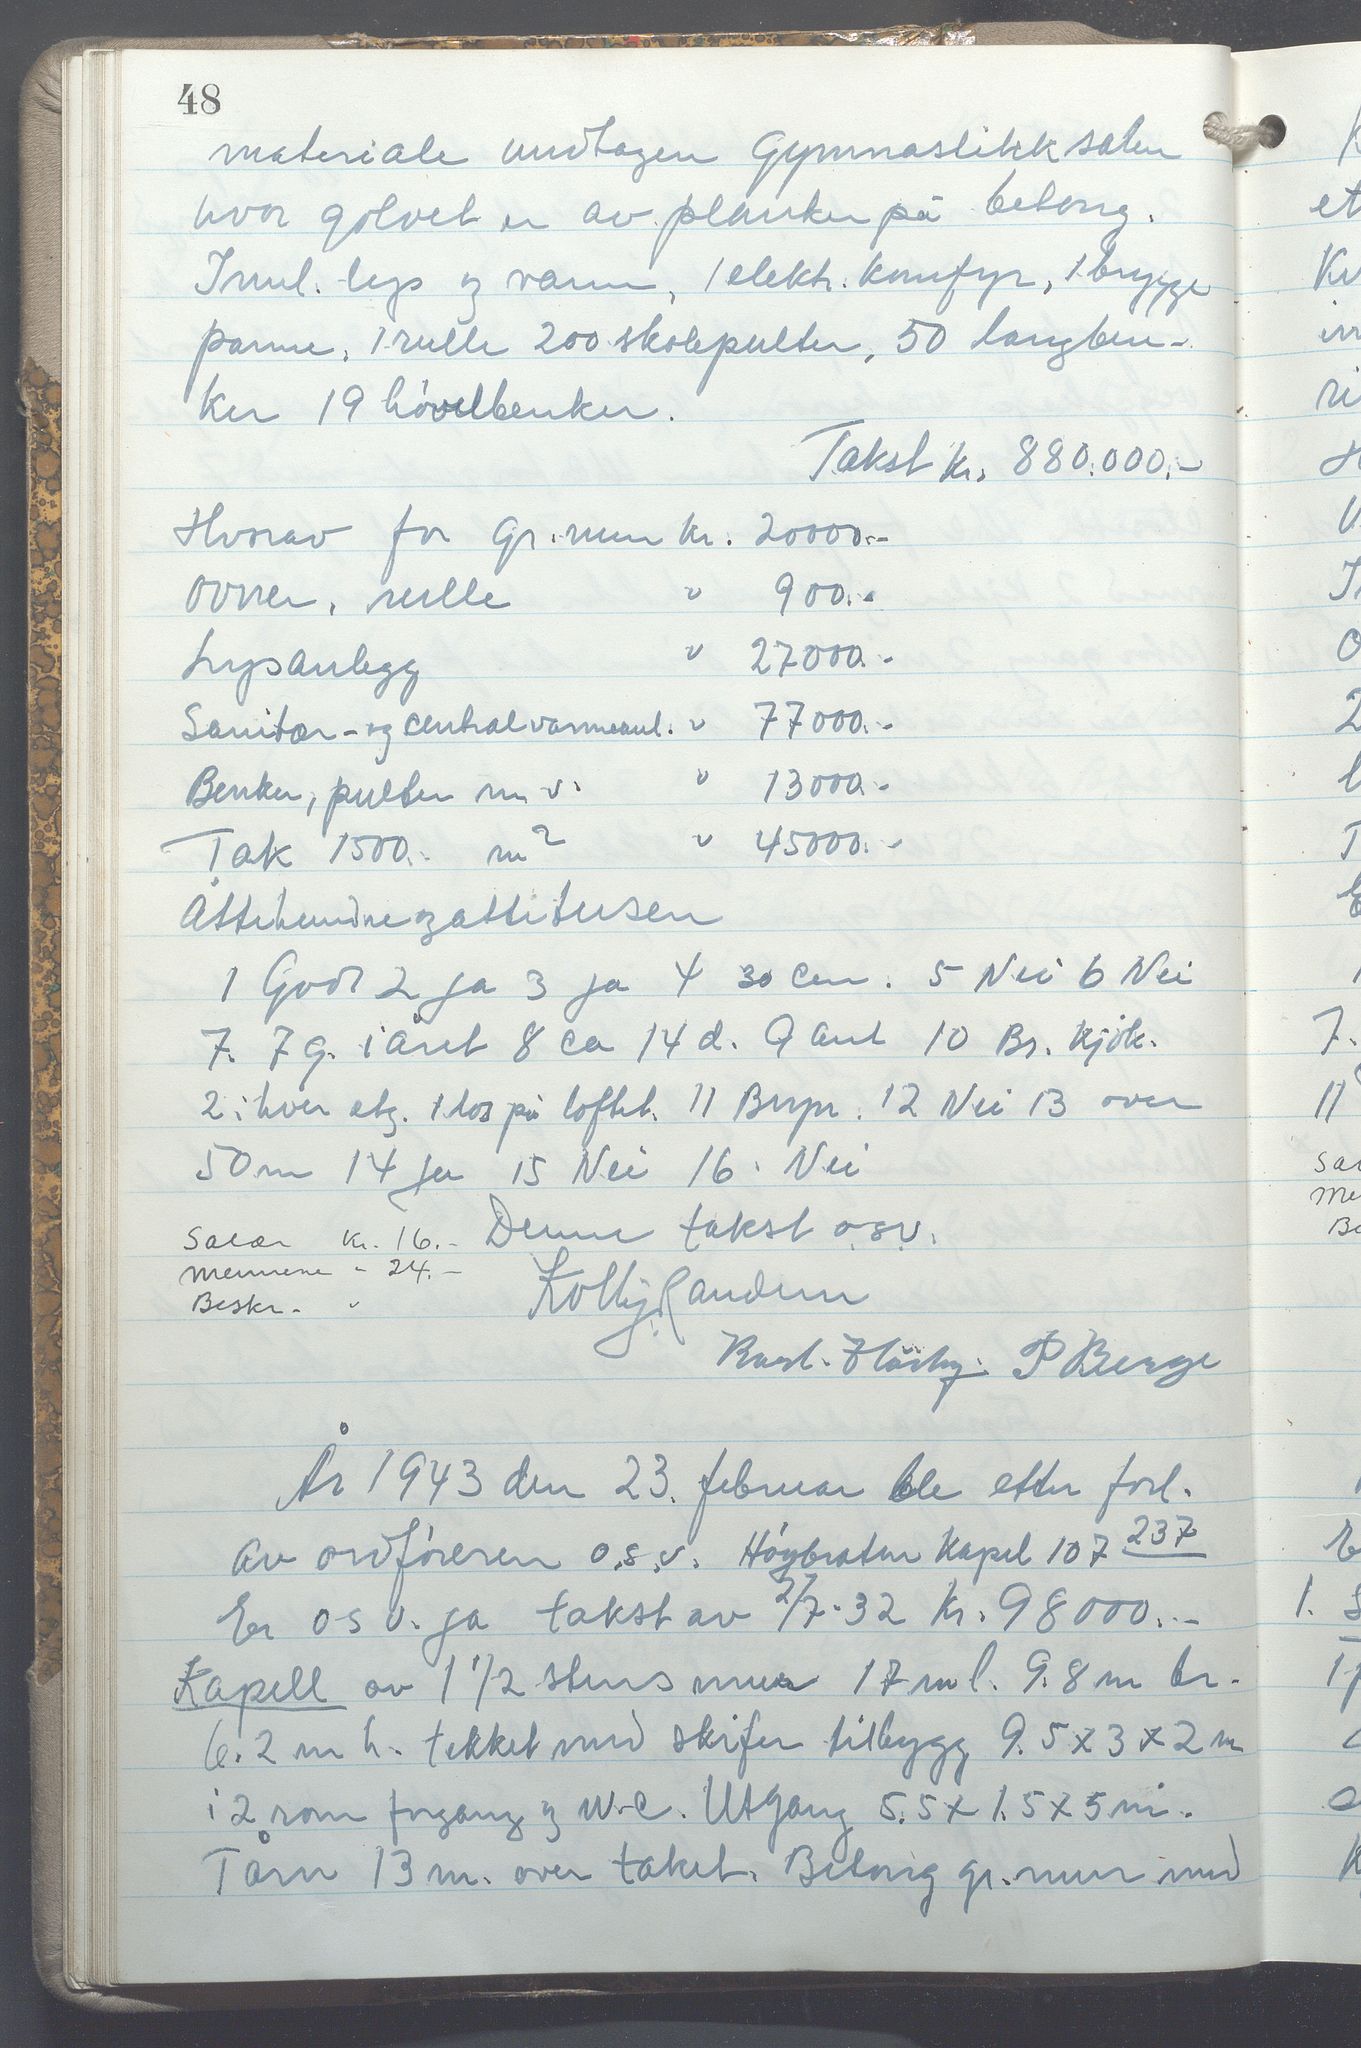 48
materiale undtagen Gymnastikksalen
hvor golvet er av planker på betong.
Innl. lys og varm, 1 elektr. komfyr, 1 brygge
panne, 1 rulle 200 skolepulter, 50 langben-
ker 19 hövelbenker.
Takst kr. 880.000.-
Hvorav for gr.mur kr. 20000.-
Ovner, rulle " 900.-
Lysanlegg " 27000.-
Sanitær- og centralvarmeanl. " 77000.-
Benker, pulter m.v. " 13000.-
Tak 1500.- m² " 45000.-
Åttehundreogåttitusen
1 Godt 2 ja 3 ja 4 30 cm. 5 Nei 6 Nei
7. 7 g. i året 8 ca 14 d. 9 ant 10 Br. kjök.
2 i hver etg. 1 los på loftet. 11 Brpr. 12 Nei 13 over
50 m 14 ja 15 Nei 16. Nei
Salær kr. 16.- Denne takst o.s.v.
Mennene " 24.-
Beskr. "
P Berge
År 1943 den 23. februar ble etter forl.
av ordföreren o.s.v. Höybråten Kapel 107 237
Er o s v. ja takst av 27/7-32 kr. 98000.-
Kapell av 1 1/2 stens mur 17 m l. 9.8 m br.
6.2 m h. tekket med skifer tilbygg 9.5 x 3 x 2 m
i 2 rom forgang og W.C. Utgang 5.5 x 1.5 x 5 m.
Tårn 13 m. over taket. Betong gr.mur med